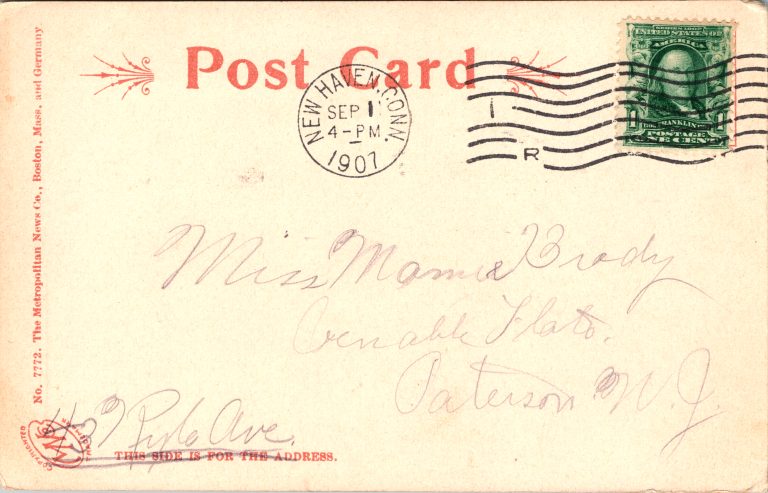 Post Card
NEW HAVEN, CONN.
SEP 1
4-PM
1907
R
SERIES 1902
UNITED STATES OF
AMERICA
FRANKLIN
POSTAGE
1 ONE CENT 1
Miss Mamie Brady
Venable Flats.
Paterson. N. J.
Ave.
THIS SIDE IS FOR THE ADDRESS.
No. 7772. The Metropolitan News Co., Boston, Mass. and Germany
COPYRIGHTED